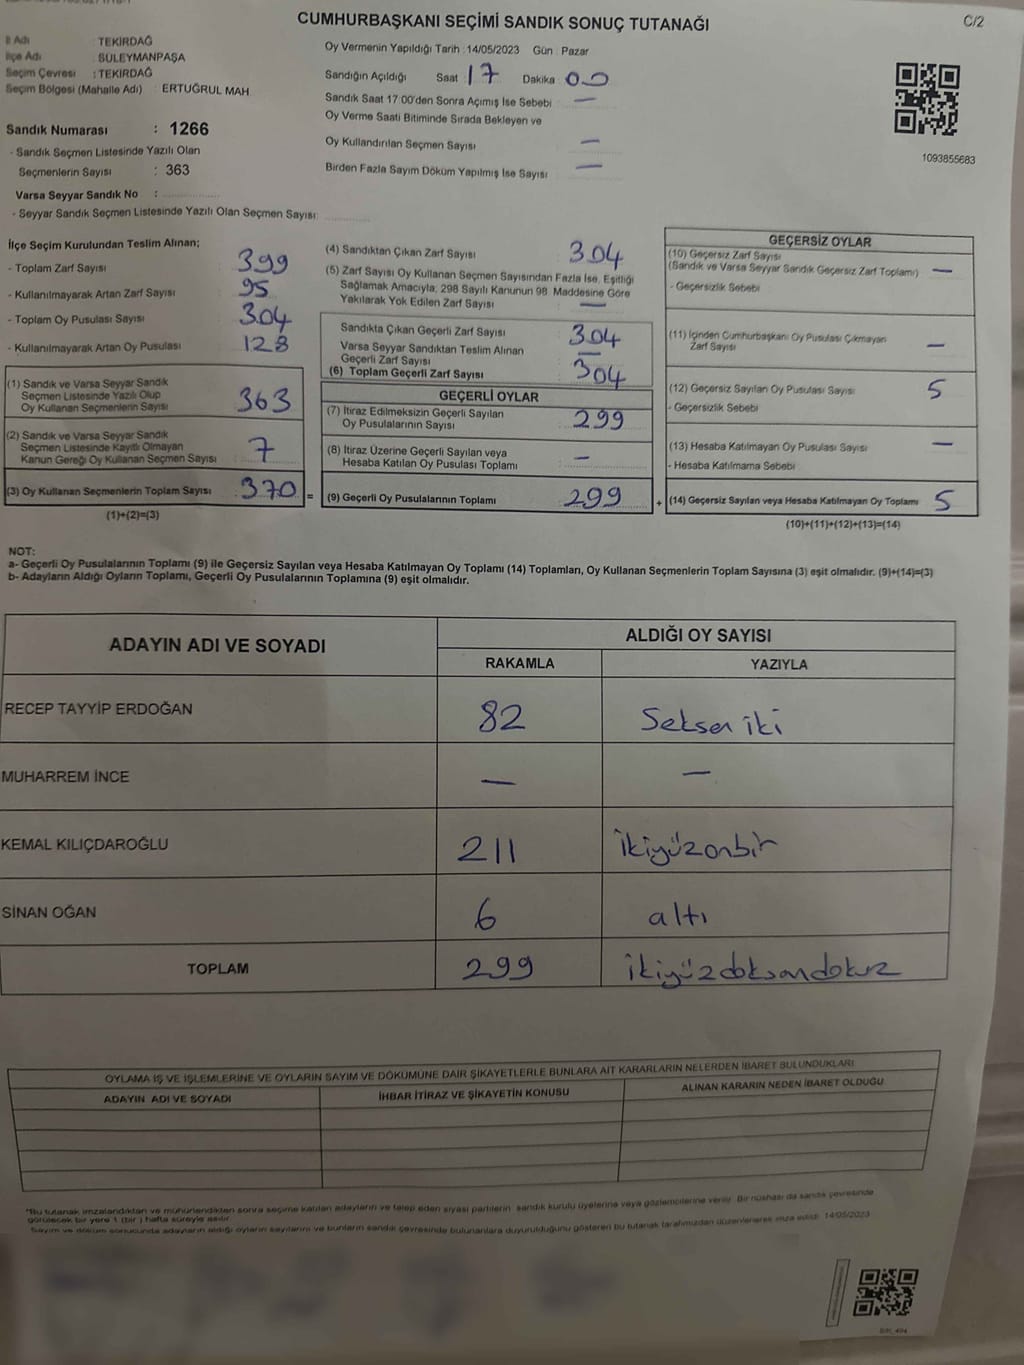 CUMHURBAŞKANI SEÇİMİ SANDIK SONUÇ TUTANAĞI
C/2
İl Adı : TEKİRDAĞ
İlçe Adı : SÜLEYMANPAŞA
Seçim Çevresi : TEKİRDAĞ
Seçim Bölgesi (Mahalle Adı) : ERTUĞRUL MAH
Oy Vermenin Yapıldığı Tarih :14/05/2023 Gün : Pazar
Sandığın Açıldığı Saat 17 Dakika 00
Sandık Saat 17:00'den Sonra Açımış İse Sebebi : —
Oy Verme Saati Bitiminde Sırada Bekleyen ve
Oy Kullandırılan Seçmen Sayısı : —
Birden Fazla Sayım Döküm Yapılmış İse Sayısı : —
1093855683
Sandık Numarası : 1266
- Sandık Seçmen Listesinde Yazılı Olan
Seçmenlerin Sayısı : 363
Varsa Seyyar Sandık No :
- Seyyar Sandık Seçmen Listesinde Yazılı Olan Seçmen Sayısı:
İlçe Seçim Kurulundan Teslim Alınan;
- Toplam Zarf Sayısı : 399
- Kullanılmayarak Artan Zarf Sayısı : 95
- Toplam Oy Pusulası Sayısı : 304
- Kullanılmayarak Artan Oy Pusulası : 128
(1) Sandık ve Varsa Seyyar Sandık
Seçmen Listesinde Yazılı Olup
Oy Kullanan Seçmenlerin Sayısı : 363
(2) Sandık ve Varsa Seyyar Sandık
Seçmen Listesinde Kayıtlı Olmayan
Kanun Gereği Oy Kullanan Seçmen Sayısı : 7
(3) Oy Kullanan Seçmenlerin Toplam Sayısı : 370 =
(1)+(2)=(3)
(4) Sandıktan Çıkan Zarf Sayısı : 304
(5) Zarf Sayısı Oy Kullanan Seçmen Sayısından Fazla İse, Eşitliği
Sağlamak Amacıyla; 298 Sayılı Kanunun 98. Maddesine Göre
Yakılarak Yok Edilen Zarf Sayısı : —
Sandıkta Çıkan Geçerli Zarf Sayısı : 304
Varsa Seyyar Sandıktan Teslim Alınan
Geçerli Zarf Sayısı : —
(6) Toplam Geçerli Zarf Sayısı : 304
GEÇERLİ OYLAR
(7) İtiraz Edilmeksizin Geçerli Sayılan
Oy Pusulalarının Sayısı : 299
(8) İtiraz Üzerine Geçerli Sayılan veya
Hesaba Katılan Oy Pusulası Toplamı : —
(9) Geçerli Oy Pusulalarının Toplamı : 299 +
GEÇERSİZ OYLAR
(10) Geçersiz Zarf Sayısı
(Sandık ve Varsa Seyyar Sandık Geçersiz Zarf Toplamı) : —
- Geçersizlik Sebebi :
(11) İçinden Cumhurbaşkanı Oy Pusulası Çıkmayan
Zarf Sayısı : —
(12) Geçersiz Sayılan Oy Pusulası Sayısı : 5
- Geçersizlik Sebebi :
(13) Hesaba Katılmayan Oy Pusulası Sayısı : —
- Hesaba Katılmama Sebebi :
(14) Geçersiz Sayılan veya Hesaba Katılmayan Oy Toplamı : 5
(10)+(11)+(12)+(13)=(14)
NOT:
a- Geçerli Oy Pusulalarının Toplamı (9) ile Geçersiz Sayılan veya Hesaba Katılmayan Oy Toplamı (14) Toplamları, Oy Kullanan Seçmenlerin Toplam Sayısına (3) eşit olmalıdır. (9)+(14)=(3)
b- Adayların Aldığı Oyların Toplamı, Geçerli Oy Pusulalarının Toplamına (9) eşit olmalıdır.
ADAYIN ADI VE SOYADI
ALDIĞI OY SAYISI
RAKAMLA YAZIYLA
RECEP TAYYİP ERDOĞAN 82 Seksen iki
MUHARREM İNCE — —
KEMAL KILIÇDAROĞLU 211 ikiyüzonbir
SİNAN OĞAN 6 altı
TOPLAM 299 ikiyüzdoksandokuz
OYLAMA İŞ VE İŞLEMLERİNE VE OYLARIN SAYIM VE DÖKÜMÜNE DAİR ŞİKAYETLERLE BUNLARA AİT KARARLARIN NELERDEN İBARET BULUNDUKLARI
ADAYIN ADI VE SOYADI İHBAR İTİRAZ VE ŞİKAYETİN KONUSU ALINAN KARARIN NEDEN İBARET OLDUĞU
*Bu tutanak imzalandıktan ve mühürlendikten sonra seçime katılan adayların ve talep eden siyasi partilerin sandık kurulu üyelerine veya gözlemcilerine verilir. Bir nüshası da sandık çevresinde
görülecek bir yere 1 (bir) hafta süreyle asılır.
Sayım ve döküm sonucunda adayların aldığı oyların sayılarını ve bunların sandık çevresinde bulunanlara duyurulduğunu gösteren bu tutanak tarafımızdan düzenlenerek imza edildi. 14/05/2023